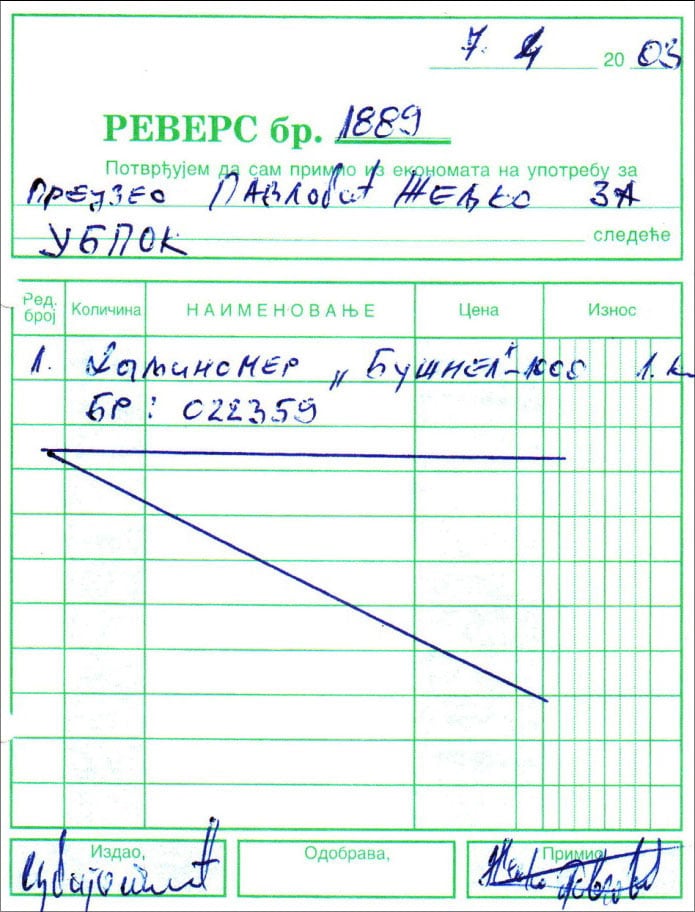 7. 4 2003
РЕВЕРС бр. 1889
Потврђујем да сам примио из економата на употребу за
ПРЕУЗЕО ПАВЛОВИЋ ЖЕЉКО ЗА
УБПОК следеће
Ред. број Количина НАИМЕНОВАЊЕ Цена Износ
1. ДАЉИНОМЕР „БУШНЕЛ"- 1.
БР: 022359
Издао, Одобрава, Примио,